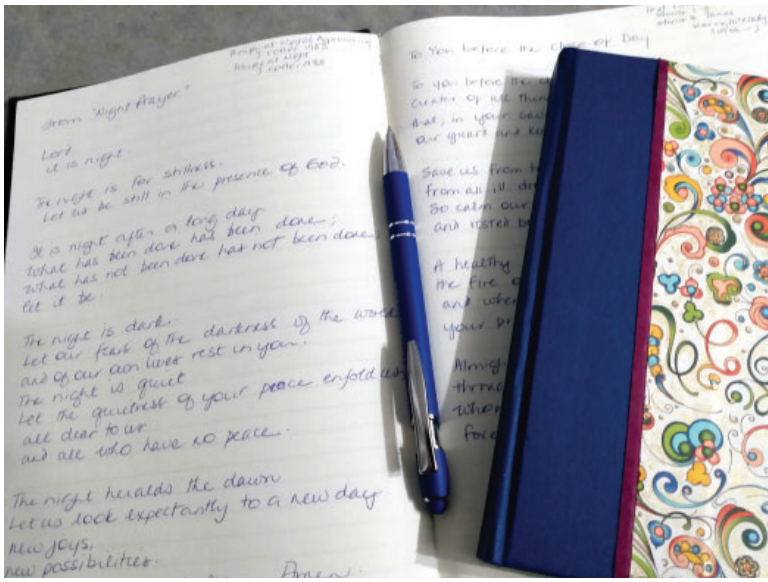 From "Night Prayer"
Lord
it is night.
The night is for stillness.
Let us be still in the presence of God.
It is night after a long day
What has been done has been done;
What has not been done has not been done;
let it be.
The night is dark.
Let our fears of the darkness of the world
and of our own lives rest in you.
The night is quiet
Let the quietness of your peace enfold us,
all dear to us
and all who have no peace.
The night heralds the dawn
Let us look expectantly to a new day
new joys,
new possibilities.
Amen.
To You before the Close of Day
To you before the
Creator of all
that, in your
our guard and
Save us from
from all ill
So calm our
and rested
A healthy
the fire
and when
your
through
Whom